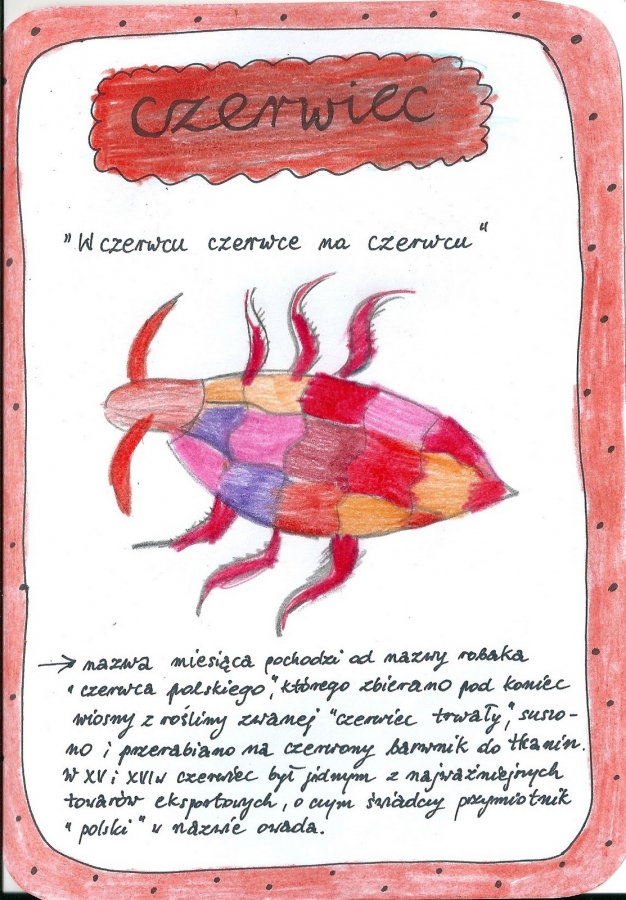 czerwiec
"W czerwcu czerwce na czerwcu"
→ nazwa miesiąca pochodzi od nazwy robaka
"czerwca polskiego", którego zbierano pod koniec
wiosny z rośliny zwanej "czerwiec trwały", suszo-
no i przerabiano na czerwony barwnik do tkanin.
W XV i XVIw czerwiec był jednym z najważniejszych
towarów eksportowych, o czym świadczy przymiotnik
"polski" w nazwie owada.